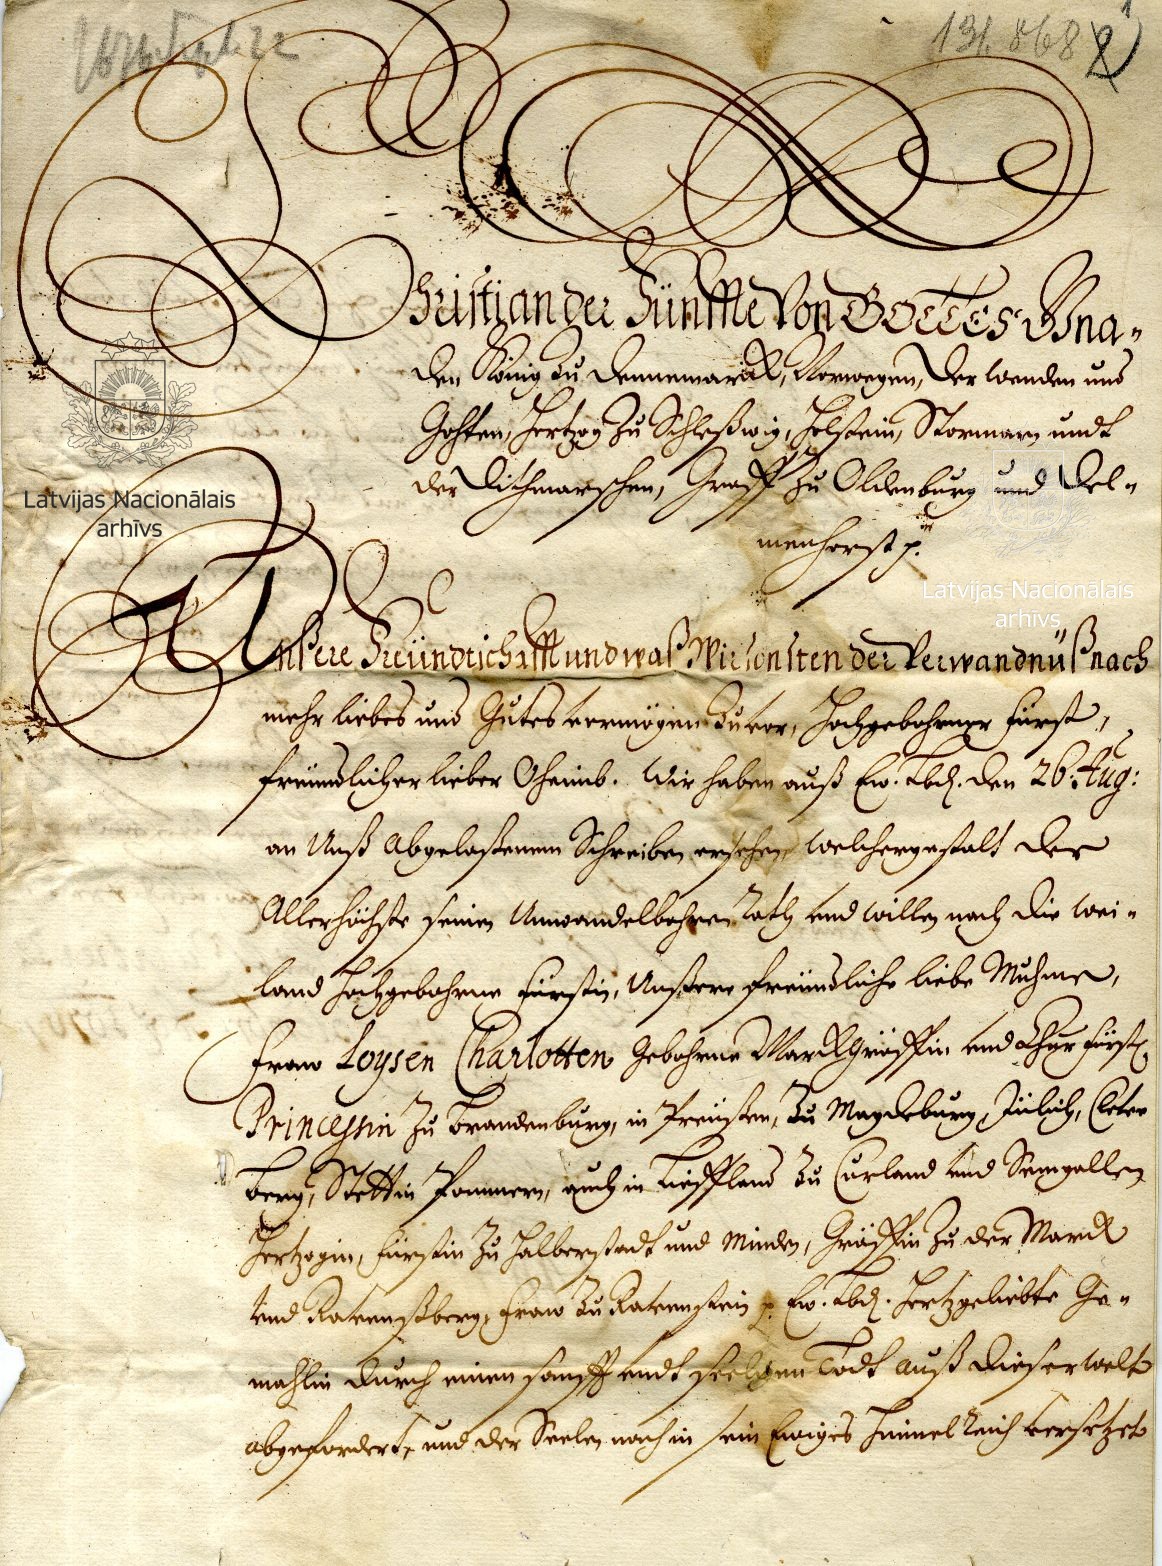 131. 868
Christian der Fünffte Von GOTTES Gna-
den König zu Dennemarck, Norwegen, der Wenden und
Gohten, Hertzog zu Schleßwig, Holstein, Stormarn undt
der Dithmarschen, Graff zu Oldenburg und Del-
menhorst p.
Latvijas Nacionālais
arhīvs
Latvijas Nacionālais
arhīvs
Unßere Freündtschafft und waß Wir sonsten der Verwandnüß nach
mehr liebes und Gutes vermögen zuvor, Hochgebohrner Fürst,
freündlicher lieber Oheimb. Wir haben auß Ew. Lbd. den 26. Aug:
an Unß abgelaßenem Schreiben ersehen, welchergestalt der
Allerhöchste seinen Unwandelbahren Rath und willen nach die wei-
land Hochgebohrne Fürstin, Unßere freündliche liebe Muhme,
Fraw Loysen Charlotten gebohrne Marckgräffin und ChurFürstl.
Princessin zu Brandenburg, in Preüßen, zu Magdeburg, Jülich, Cleve
Berg, Stettin Pommern, auch in Lieffland zu Curland und Semgallen
Hertzogin, Fürstin zu Halberstadt und Minden, Gräffin zu der Marck
und Ravenßberg, Fraw zu Ravenstein p. Ew. Lbd. Hertzgeliebte Ge-
mahlin durch einen sanfft undt seeligen Todt auß dieser welt
abgefordert, und der Seelen nach in sein Ewiges Himmel Reich versetzet